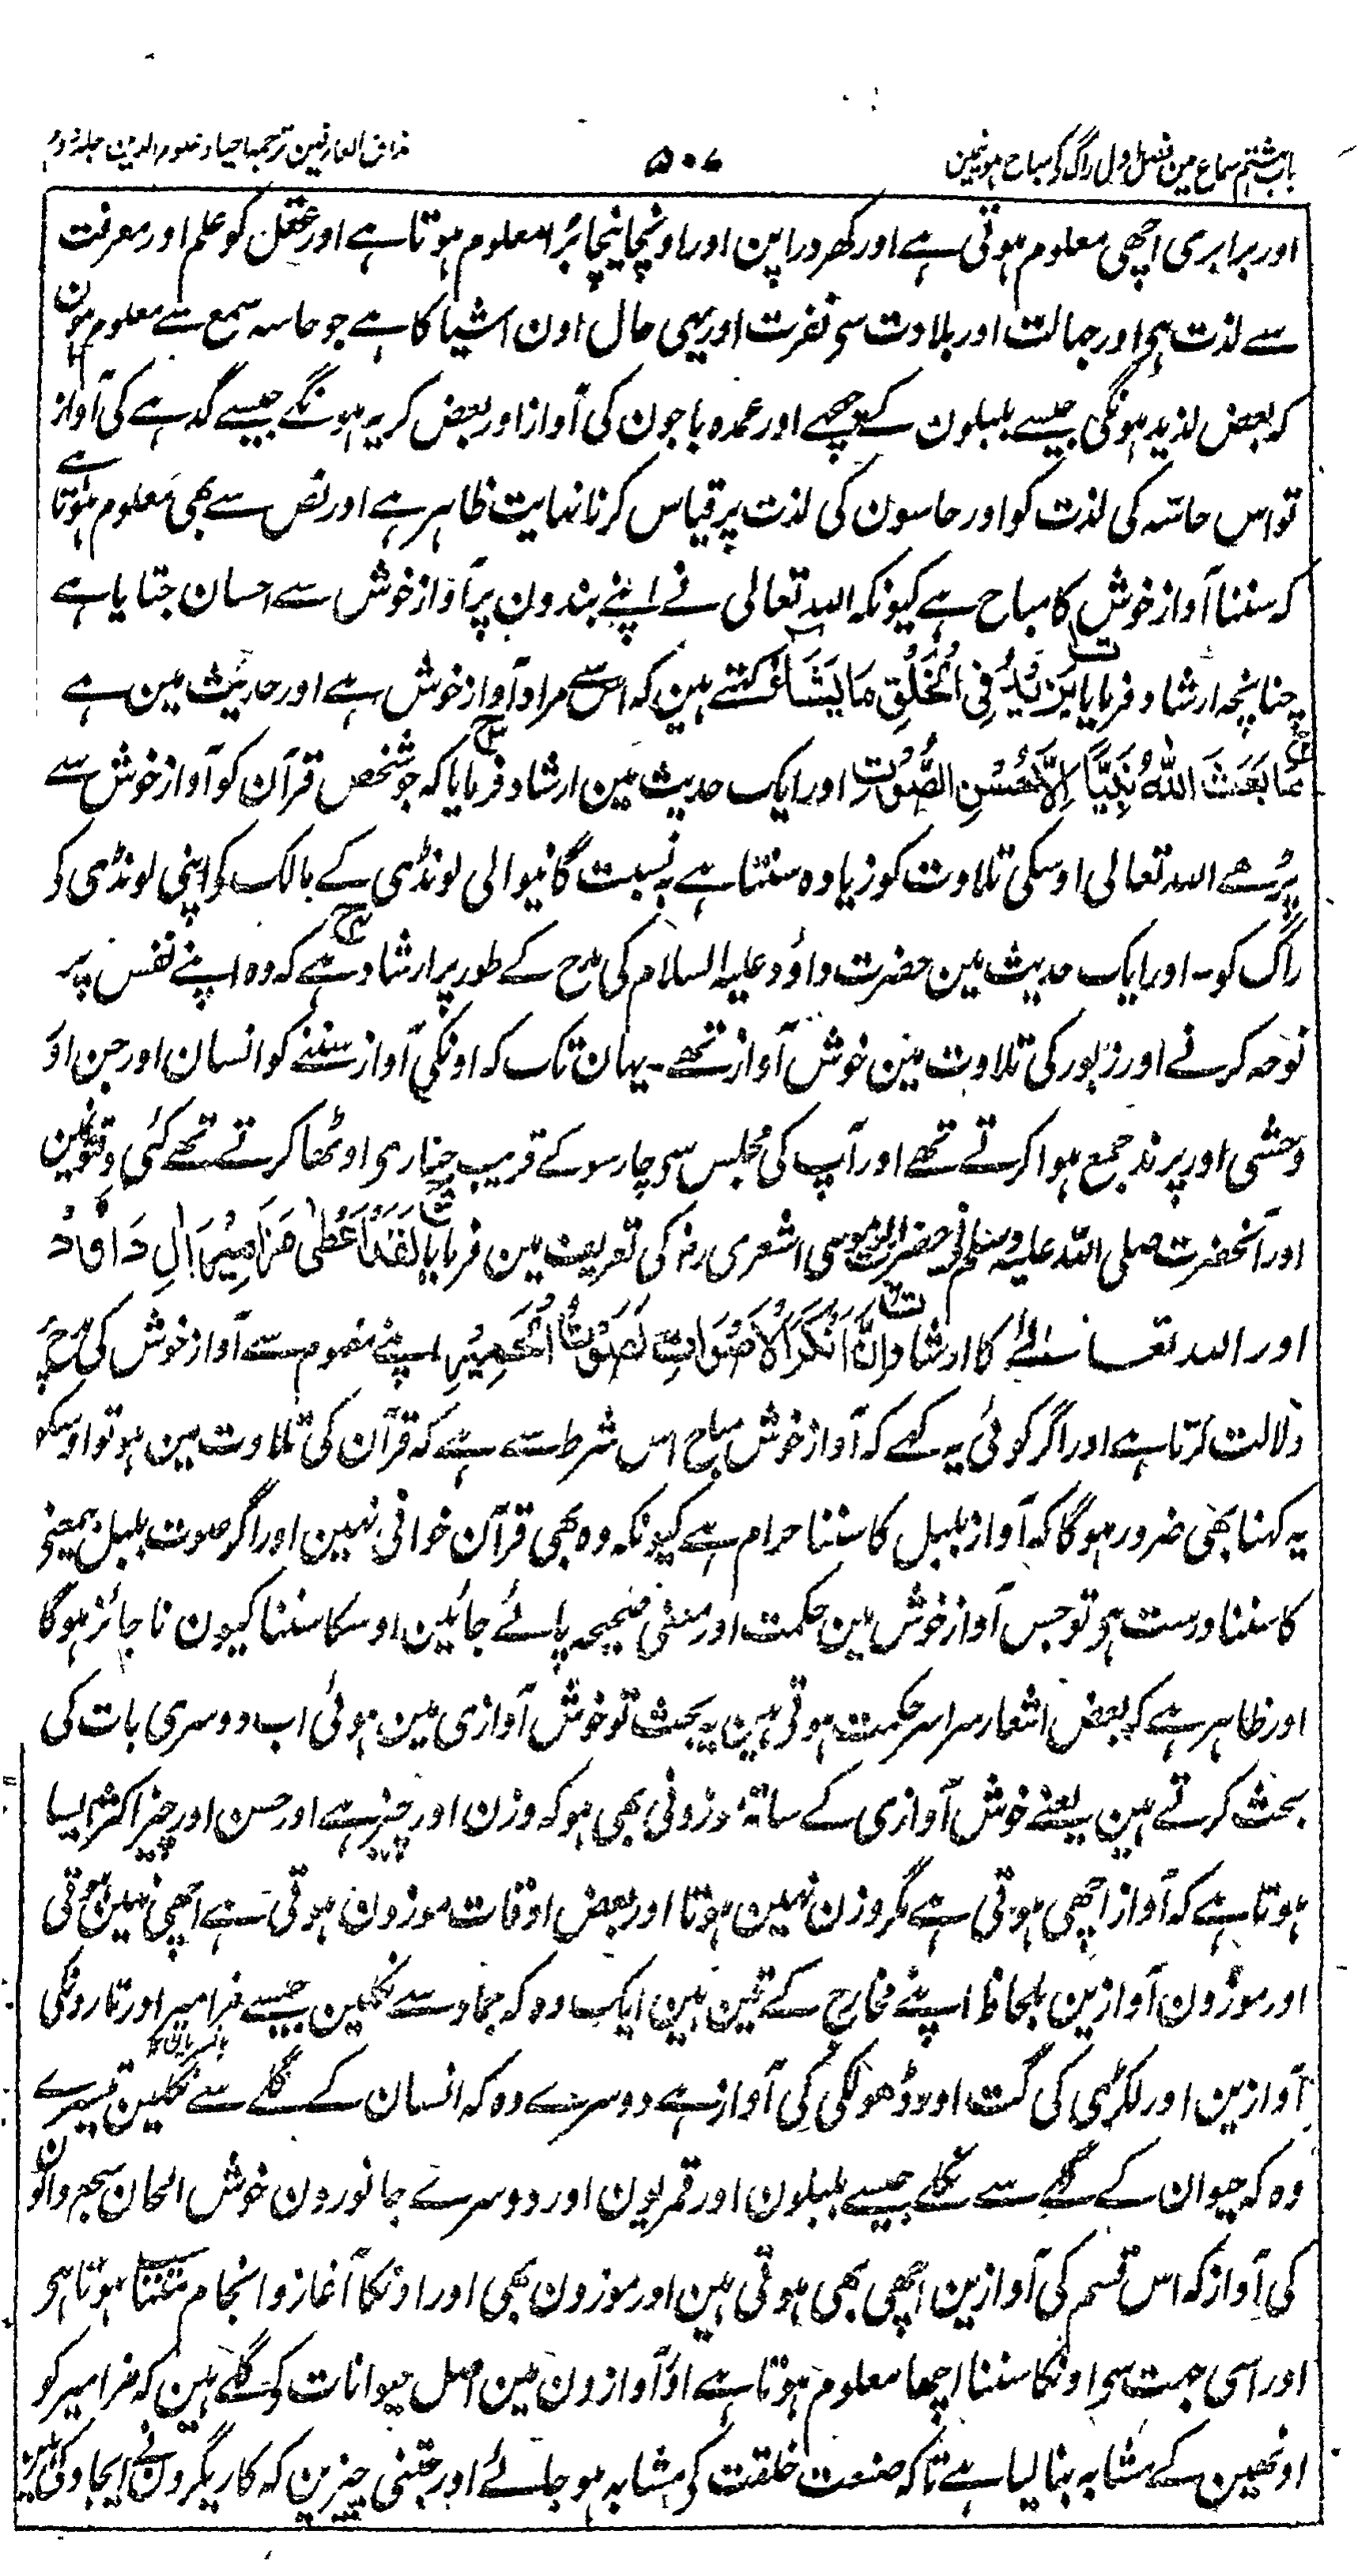 باب ہشتم سماع مین فصل اول راگ کی مباح ہونیمین
۵۰۷
مذاق العارفین ترجمہ احیاء علوم الدین جلد دوم
اور برابری اچھی معلوم ہوتی ہے اور کھردراپن اور اونچا نیچا بُرا معلوم ہوتا ہے اور عقل کو علم اور معرفت
سے لذت ہی اور جہالت اور بلادت سی نفرت اور یہی حال اون اشیا کا ہے جو حاسہ سمع سے معلوم ہون
کہ بعض لذیذ ہونگی جیسے بلبلون کے چہچہے اور عمدہ باجون کی آواز اور بعض کریہ ہونگے جیسے گدہے کی آواز
تو اس حاسّہ کی لذت کو اور حاسون کی لذت پر قیاس کرنا نہایت ظاہر ہے اور نص سے بھی معلوم ہوتا ہے
کہ سننا آواز خوش کا مباح ہے کیونکہ اللہ تعالی نے اپنے بندون پر آواز خوش سے احسان جتایا ہے
چنانچہ ارشاد فرمایا یَزِیْدُ فِی الْخَلْقِ مَا یَشَآءُ کہتے ہین کہ اس سے مراد آواز خوش ہے اور حدیث مین ہے
مَا بَعَثَ اللهُ نَبِیًّا اِلَّا حَسَنِ الصَّوْتِ اور ایک حدیث مین ارشاد فرمایا کہ جو شخص قرآن کو آواز خوش سے
پڑھے اللہ تعالی اوسکی تلاوت کو زیادہ سنتا ہے بہ نسبت گانیوالی لونڈی کے مالک کو اپنی لونڈی کو
راگ کو۔ اور ایک حدیث مین حضرت داؤد علیہ السلام کی مدح کے طور پر ارشاد ہے کہ وہ اپنے نفس پر
نوحہ کرنے اور زبور کی تلاوت مین خوش آواز تھے۔ یہان تک کہ اونکی آواز سننے کو انسان اور جن اور
وحشی اور پرند جمع ہوا کرتے تھے اور آپ کی مجلس سی چار سو کے قریب جنازی اوٹھا کرتے تھے کئی وقتونمین
اور آنحضرت صلی اللہ علیہ وسلم نے حضرت ابو موسی اشعری رض کی تعریف مین فرمایا لَقَدْ اُعْطِیَ مَزَامِیْرَ اٰلِ دَاوٗدَ
اور اللہ تعالیٰ کا ارشاد اِنَّ اَنْکَرَ الْاَصْوَاتِ لَصَوْتُ الْحَمِیْرِ اپنے مفہوم سے آواز خوش کی مدح پر
دلالت کرتا ہے اور اگر کوئی یہ کہے کہ آواز خوش مباح اس شرط سے ہے کہ قرآن کی تلاوت مین ہو تو اوسکو
یہ کہنا بھی ضرور ہوگا کہ آواز بلبل کا سننا حرام ہے کیونکہ وہ بھی قرآن خوانی نہین اور اگر صوت بلبل بیمعنی
کا سننا درست ہو تو جس آواز خوش مین حکمت اور معنی صحیحہ پائے جائین اوسکا سننا کیون ناجائز ہوگا
اور ظاہر ہے کہ بعض اشعار سراسر حکمت ہوتی ہین یہ بحث تو خوش آوازی مین ہوئی اب دوسری بات کی
بحث کرتے ہین یعنے خوش آوازی کے ساتھ موزونی بھی ہو کہ وزن اور چیز ہے اور حسن اور چیز اکثر ایسا
ہوتا ہے کہ آواز اچھی ہوتی ہے مگر وزن نہین ہوتا اور بعض اوقات موزون ہوتی ہے اچھی نہین ہوتی
اور موزون آوازین بلحاظ اپنے مخارج کے تین ہین ایک وہ کہ جماد سے نکلین جیسے مزامیر اور تارونکی
آوازین اور لکڑی کی گت اور ڈھولکی کی آواز ہے دوسرے وہ کہ انسان کے گلے سے نکلین تیسرے
وہ کہ حیوان کے گلے سے نکلے جیسے بلبلون اور قمریون اور دوسرے جانورون خوش الحان سجع والون
کی آواز کہ اس قسم کی آوازین اچھی بھی ہوتی ہین اور موزون بھی اور اونکا آغاز و انجام متناسب ہوتا ہی
اور اسی جہت سی اونکا سننا اچھا معلوم ہوتا ہے اور آوازون مین اصل حیوانات کے گلے ہین کہ مزامیر کو
اونھین کے مشابہ بنا لیا ہے تاکہ صنعت خلقت کی مشابہ ہو جائے اور جتنی چیزین کہ کاریگرون نے ایجاد کی ہین